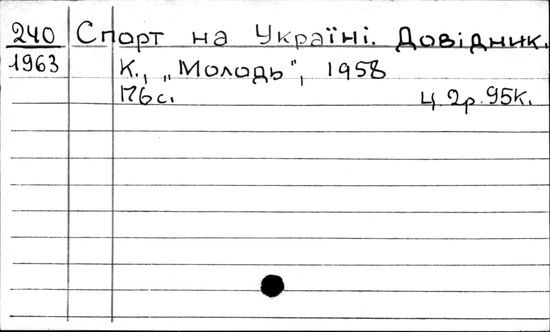 240 Спорт на Україні. Довідник.
1963 К., „Молодь", 1958
176с. ц. 2р. 95к.